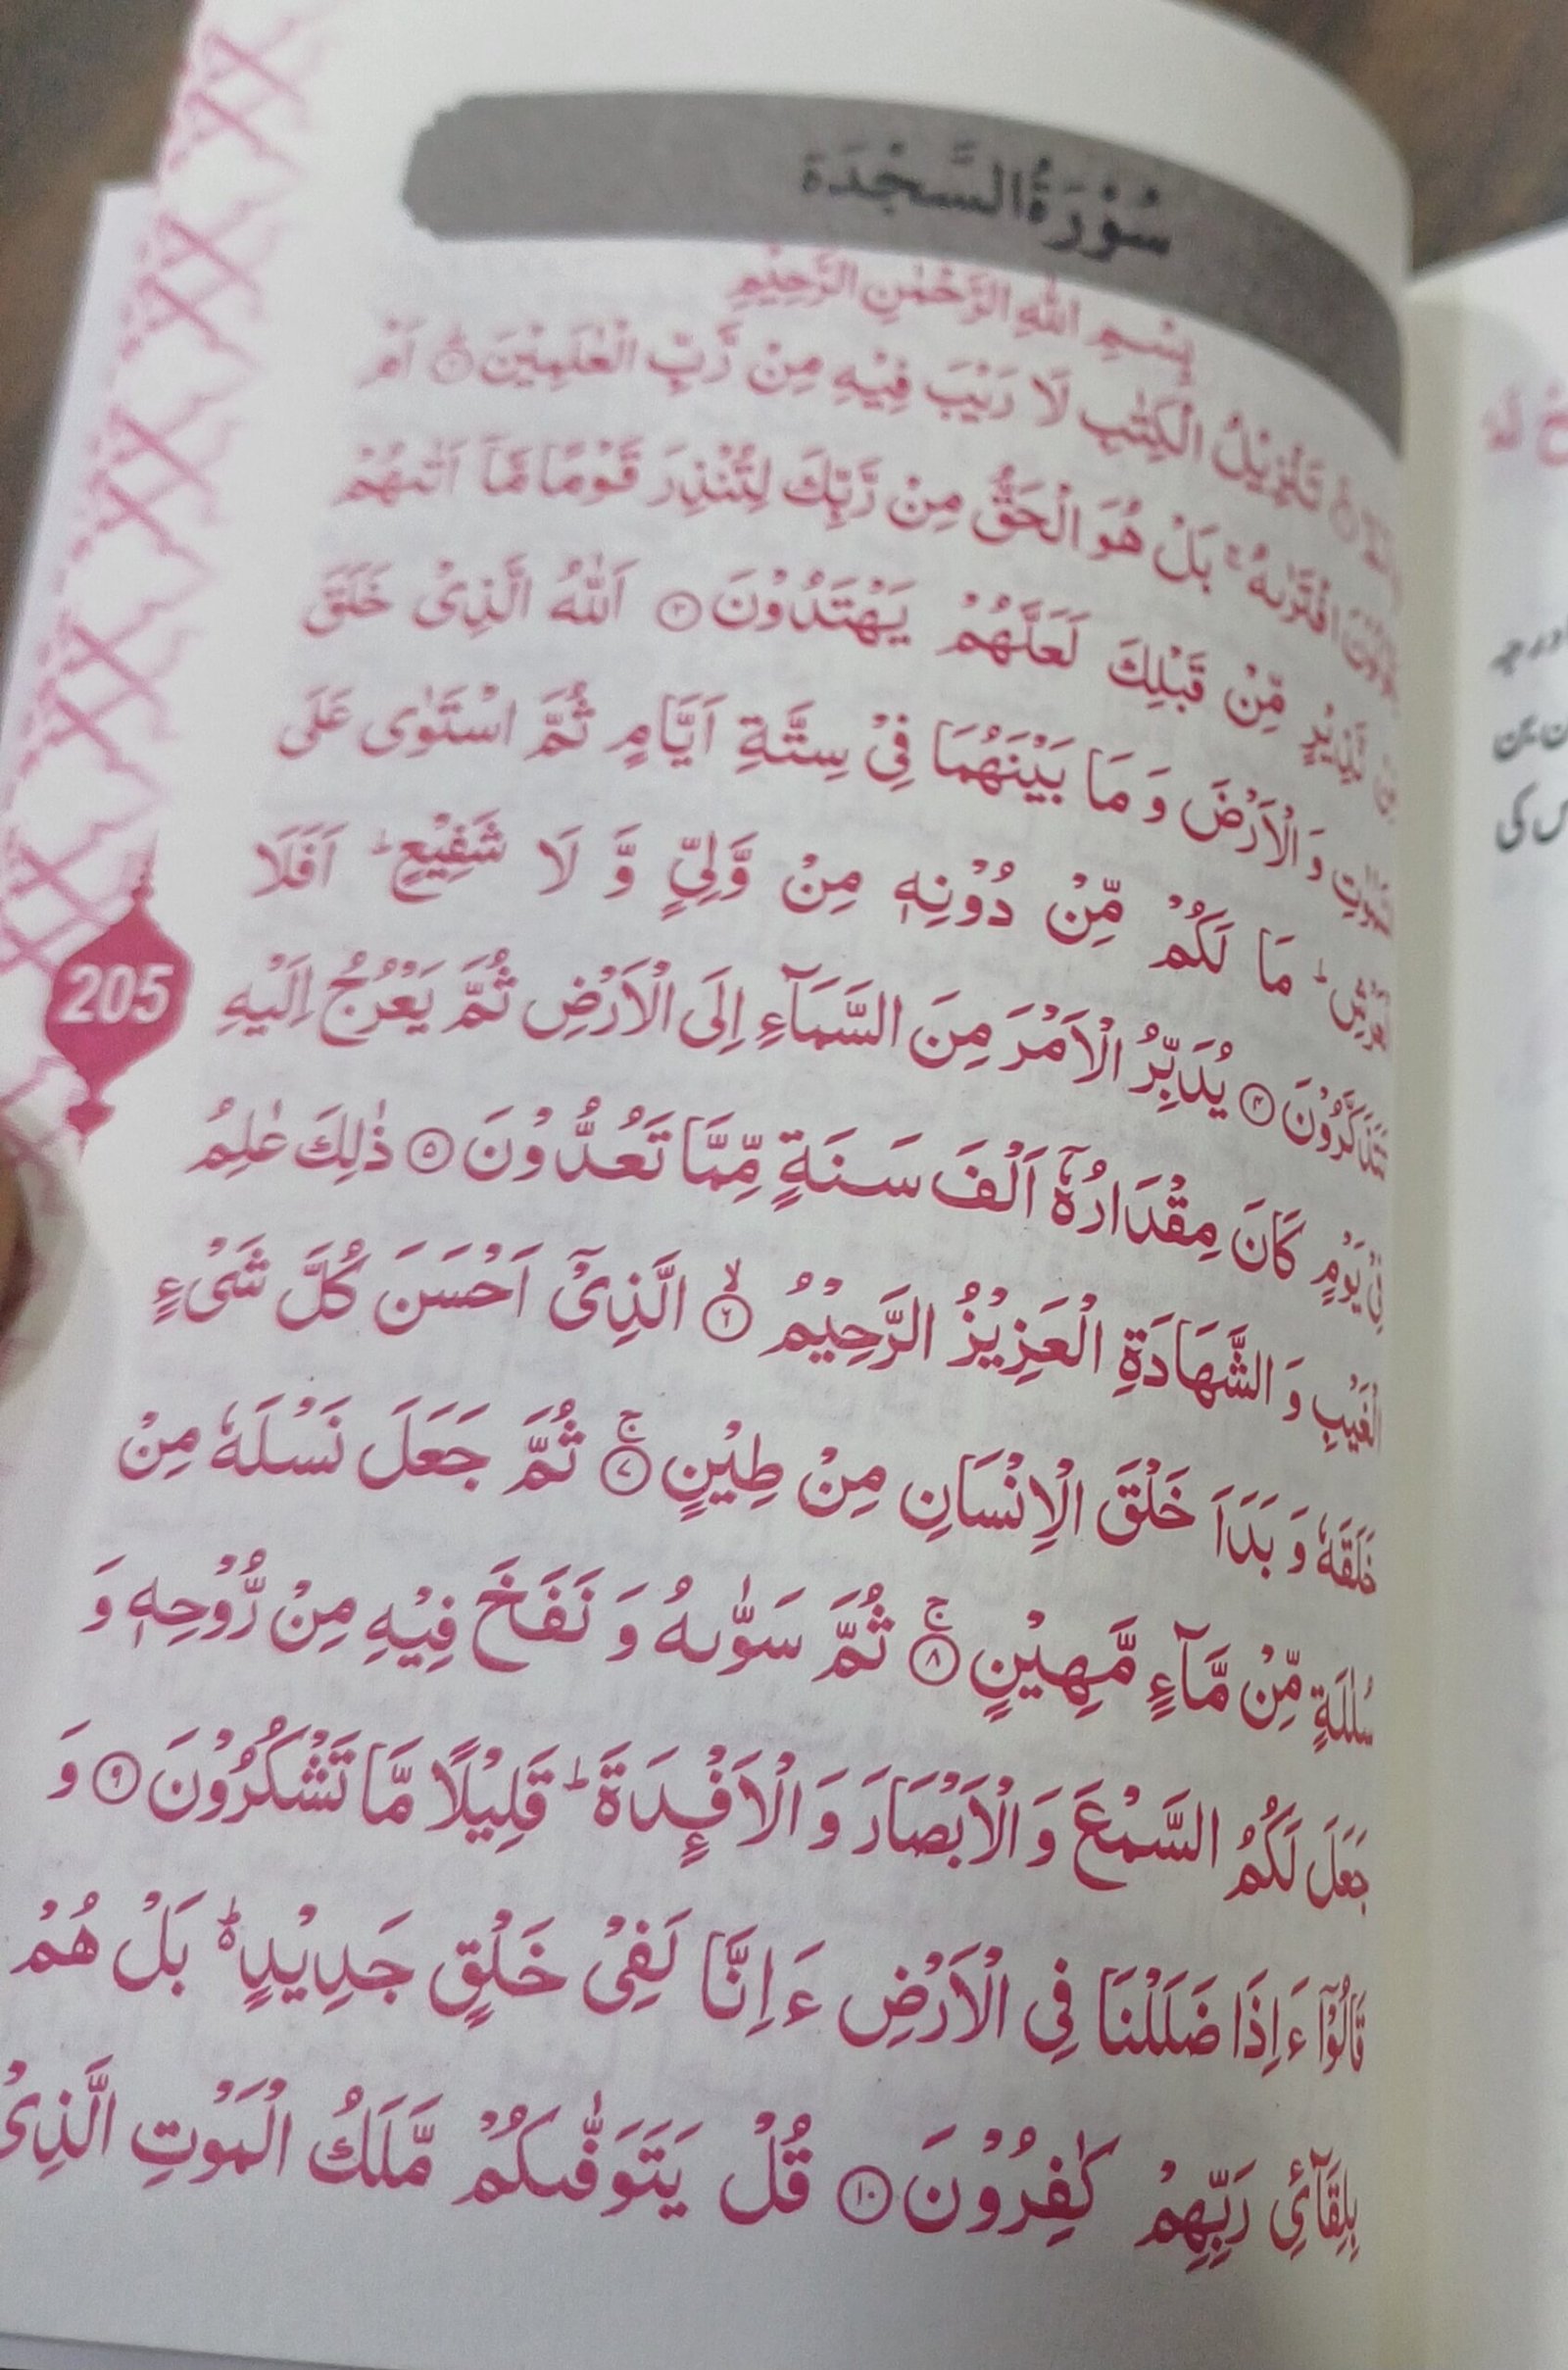 سُوْرَةُ السَّجْدَة
بِسْمِ اللّٰهِ الرَّحْمٰنِ الرَّحِيْمِ
تَنْزِيْلُ الْكِتٰبِ لَا رَيْبَ فِيْهِ مِنْ رَّبِّ الْعٰلَمِيْنَ ؕ۝۲ اَمْ
افْتَرٰىهُ ۚ بَلْ هُوَ الْحَقُّ مِنْ رَّبِّكَ لِتُنْذِرَ قَوْمًا مَّاۤ اَتٰىهُمْ
نَّذِيْرٍ مِّنْ قَبْلِكَ لَعَلَّهُمْ يَهْتَدُوْنَ ۝۳ اَللّٰهُ الَّذِىْ خَلَقَ
السَّمٰوٰتِ وَ الْاَرْضَ وَ مَا بَيْنَهُمَا فِىْ سِتَّةِ اَيَّامٍ ثُمَّ اسْتَوٰى عَلَى
الْعَرْشِ ؕ مَا لَكُمْ مِّنْ دُوْنِهٖ مِنْ وَّلِىٍّ وَّ لَا شَفِيْعٍ ؕ اَفَلَا
تَتَذَكَّرُوْنَ ۝۴ يُدَبِّرُ الْاَمْرَ مِنَ السَّمَآءِ اِلَى الْاَرْضِ ثُمَّ يَعْرُجُ اِلَيْهِ
فِىْ يَوْمٍ كَانَ مِقْدَارُهٗۤ اَلْفَ سَنَةٍ مِّمَّا تَعُدُّوْنَ ۝۵ ذٰلِكَ عٰلِمُ
الْغَيْبِ وَ الشَّهَادَةِ الْعَزِيْزُ الرَّحِيْمُ ۙ۝۶ الَّذِىْۤ اَحْسَنَ كُلَّ شَىْءٍ
خَلَقَهٗ وَ بَدَاَ خَلْقَ الْاِنْسَانِ مِنْ طِيْنٍ ۚ۝۷ ثُمَّ جَعَلَ نَسْلَهٗ مِنْ
سُلٰلَةٍ مِّنْ مَّآءٍ مَّهِيْنٍ ۚ۝۸ ثُمَّ سَوّٰىهُ وَ نَفَخَ فِيْهِ مِنْ رُّوْحِهٖ وَ
جَعَلَ لَكُمُ السَّمْعَ وَ الْاَبْصَارَ وَ الْاَفْـِٕدَةَ ؕ قَلِيْلًا مَّا تَشْكُرُوْنَ ۝۹ وَ
قَالُوْۤا ءَاِذَا ضَلَلْنَا فِى الْاَرْضِ ءَاِنَّا لَفِىْ خَلْقٍ جَدِيْدٍ ؕ۬ بَلْ هُمْ
بِلِقَآئِ رَبِّهِمْ كٰفِرُوْنَ ۝۱۰ قُلْ يَتَوَفّٰىكُمْ مَّلَكُ الْمَوْتِ الَّذِىْ
205